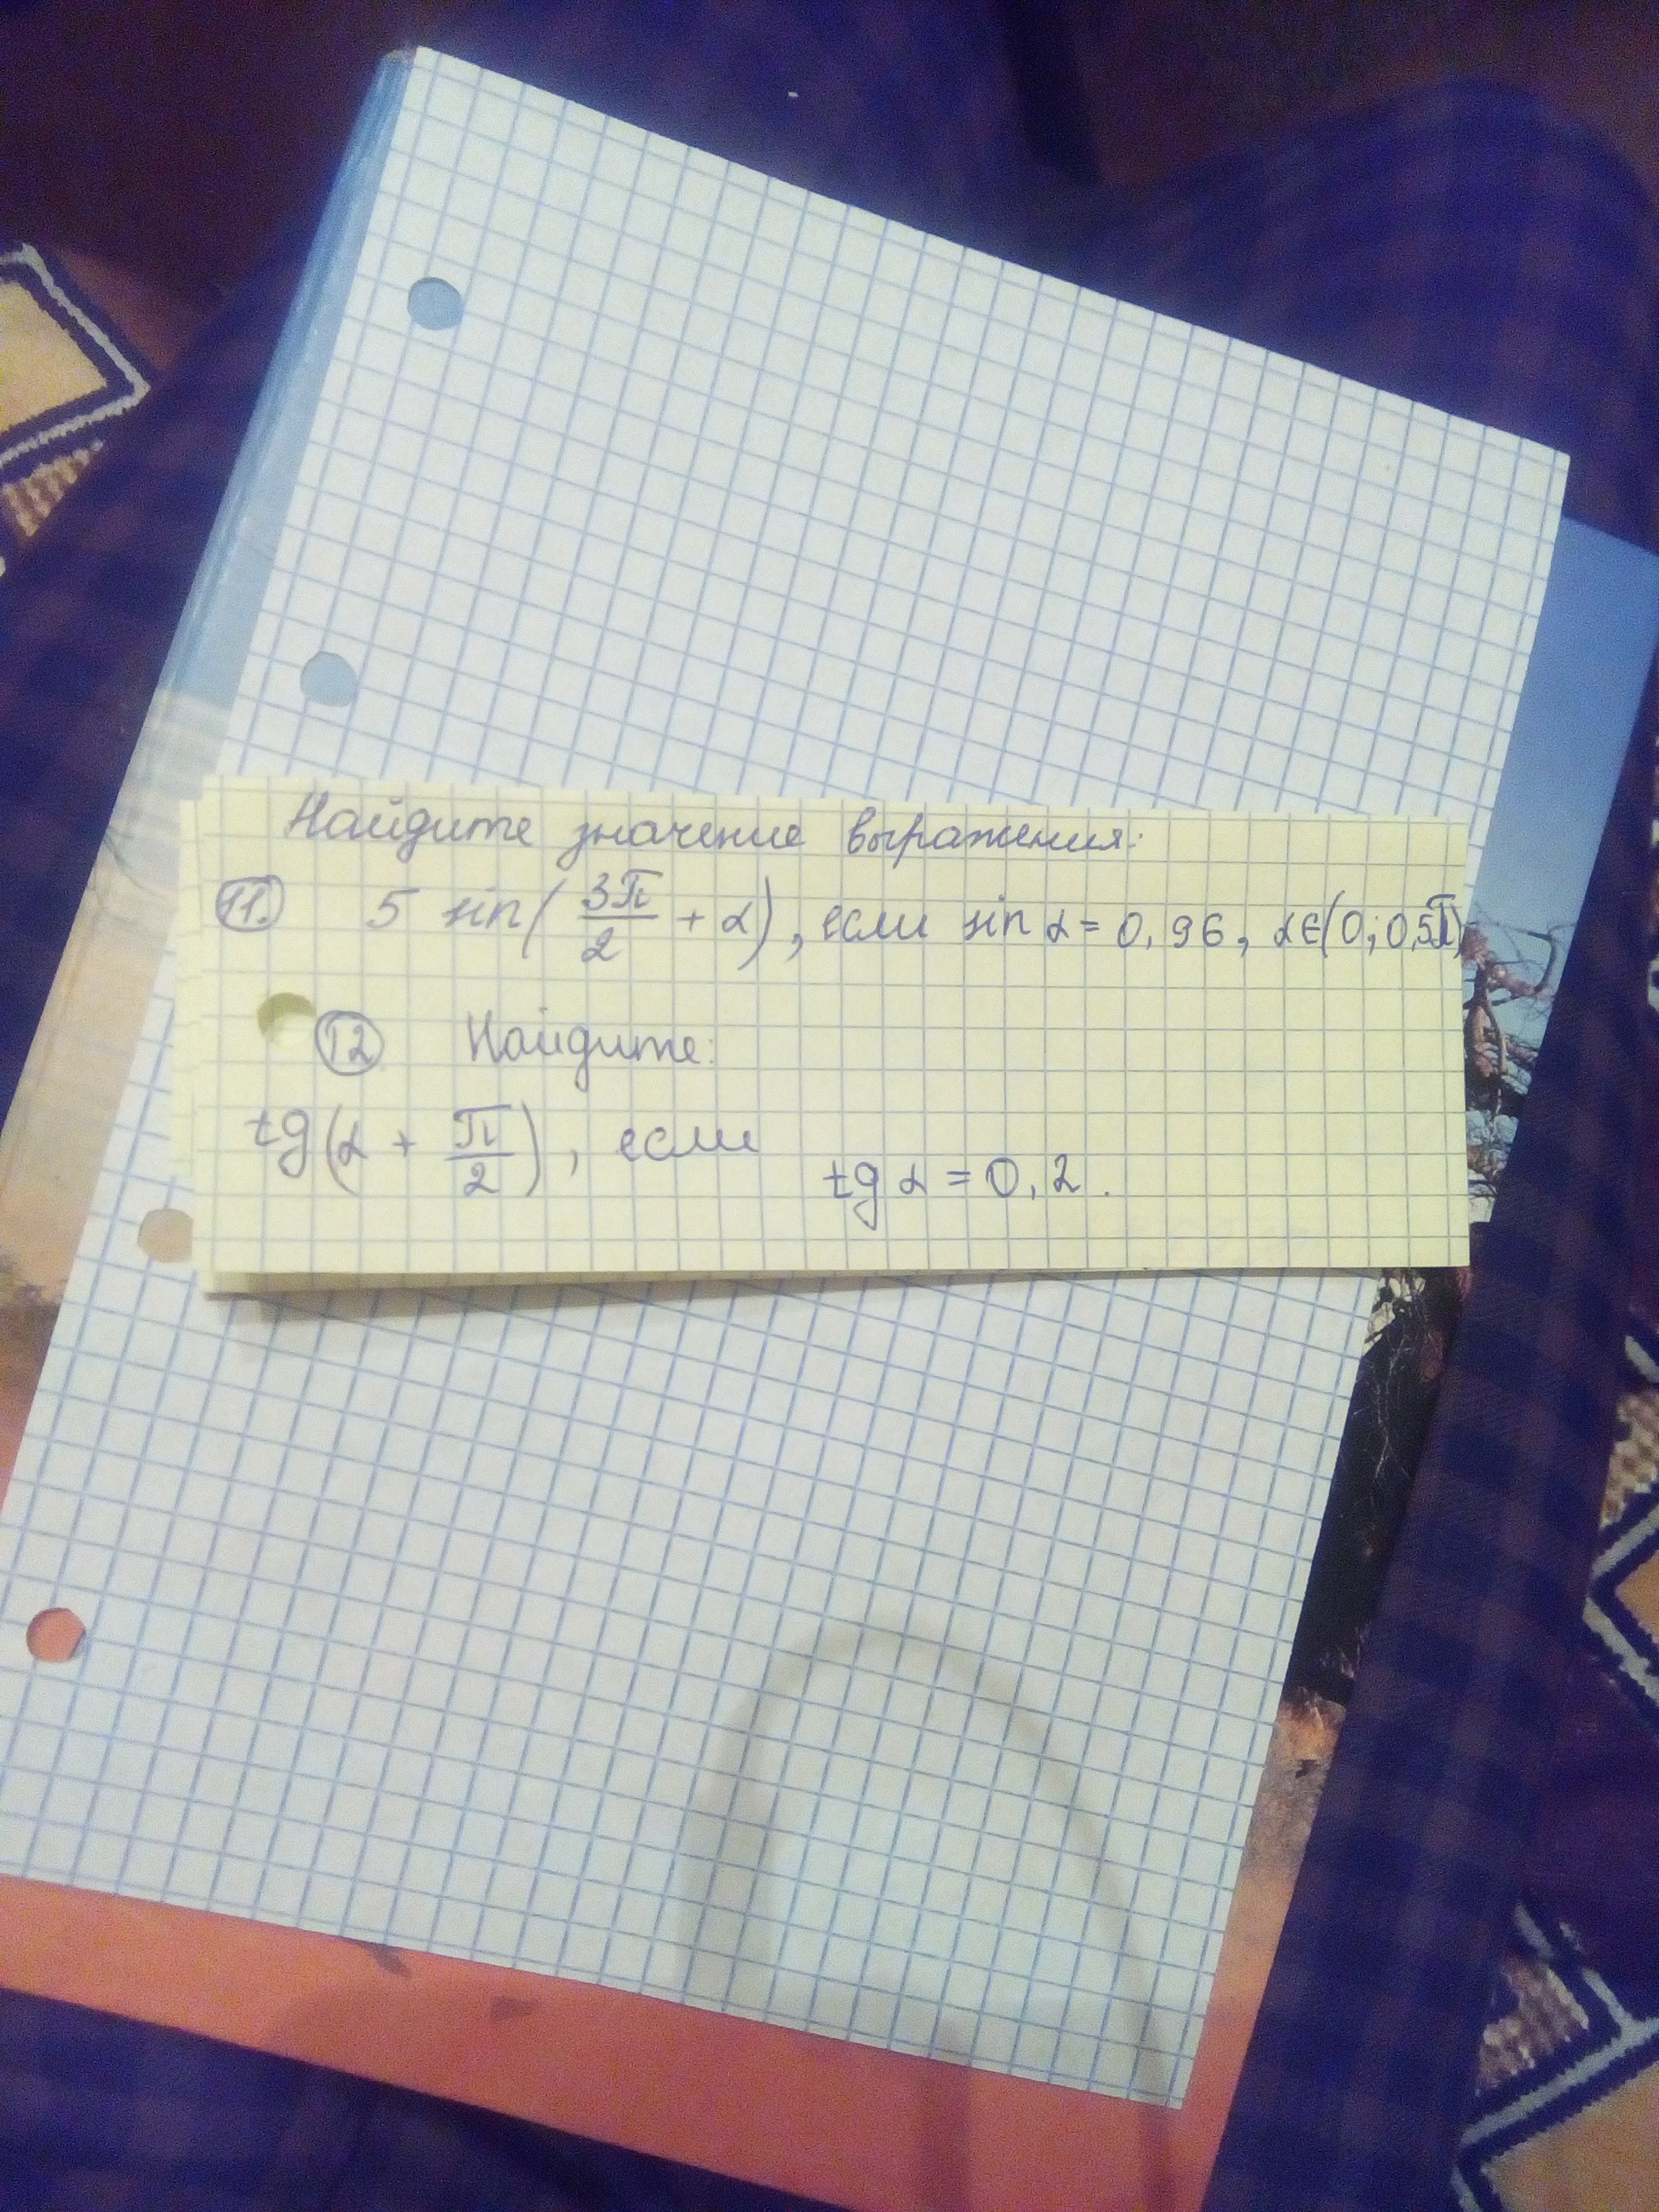 Найдите значение выражения:
11. 5 sin(3π/2 + α), если sin α = 0,96, α∈(0; 0,5π)
12 Найдите:
tg(α + π/2), если tg α = 0,2.